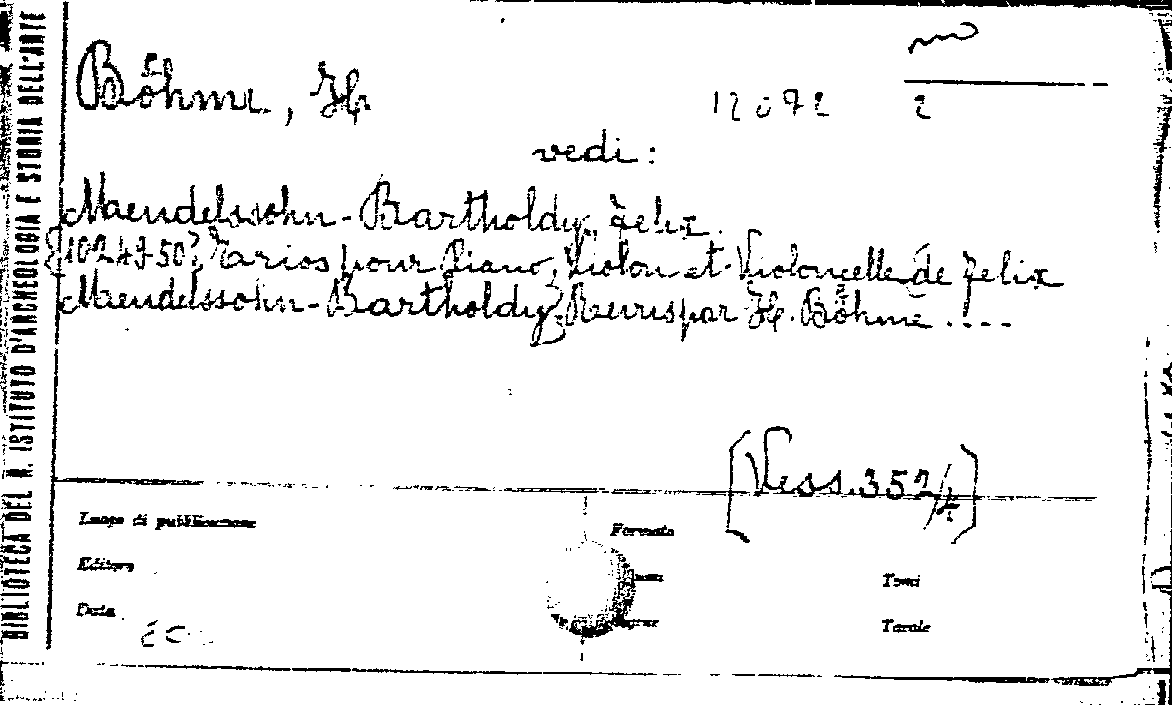 BIBLIOTECA DEL R. ISTITUTO D'ARCHEOLOGIA E STORIA DELL'ARTE
Böhme, H.
12072 2
vedi:
Maendelssohn-Bartholdy, Felix.
pour Piano, Violon et Violoncelle de Felix
Maendelssohn-Bartholdy par H. Böhme ....
[Vess. 352/
Luogo di pubblicazione
Formato
Editore
Tomi
Data
Tavole